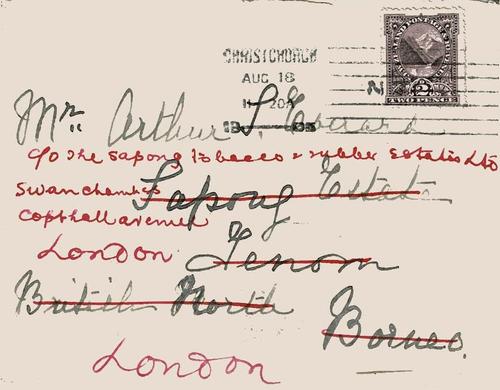 CHRISTCHURCH
AUG 18
11 20A
NEW ZEALAND POSTAGE & REVENUE
2
TWO PENCE
N
Mr. Arthur J.
c/o The Sapong Tobacco & rubber Estates Ltd
Swan chambers
Sapong Estate
Copthall avenue
London
Tenom
British North
Borneo.
London